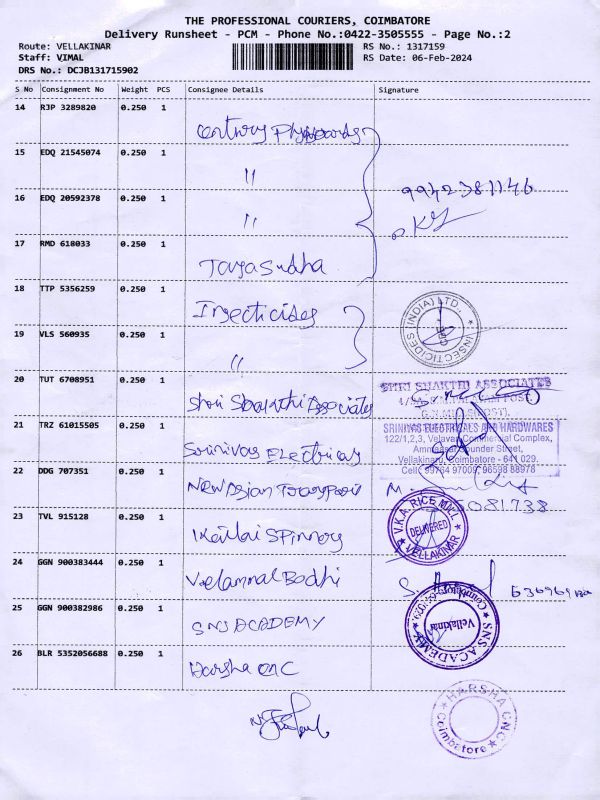 THE PROFESSIONAL COURIERS, COIMBATORE
Delivery Runsheet - PCM - Phone No.:0422-3505555 - Page No.:2
Route: VELLAKINAR
RS No.: 1317159
Staff: VIMAL
RS Date: 06-Feb-2024
DRS No.: DCJB131715902
S No Consignment No Weight PCS Consignee Details Signature
14 RJP 3289820 0.250 1
Century Plyboards
15 EDQ 21545074 0.250 1
"
9942381146
16 EDQ 20592378 0.250 1
"
17 RMD 618033 0.250 1
Jayasudha
18 TTP 5356259 0.250 1
Insecticides
INSECTICIDES (INDIA) LTD.,
19 VLS 560935 0.250 1
"
20 TUT 6708951 0.250 1
Shri Shakthi Associates
SHRI SHAKTHI ASSOCIATES
21 TRZ 61015505 0.250 1
Srinivas Electricals
SRINIVAS ELECTRICALS AND HARDWARES
122/1,2,3, Velavan Commercial Complex,
Street,
Vellakinar, Coimbatore - 641 029.
Cell: 99764 97009, 96598 88978
22 DDG 707351 0.250 1
New Asian
23 TVL 915128 0.250 1
Kailai Spinners
V.K.A. RICE MILL
DELIVERED
VELLAKINAR
24 GGN 900383444 0.250 1
Velammal Bodhi
25 GGN 900382986 0.250 1
SNS ACADEMY
SNS ACADEMY
Vellakinar
26 BLR 5352056688 0.250 1
Harsha CNC
HARSHA CNC
Coimbatore